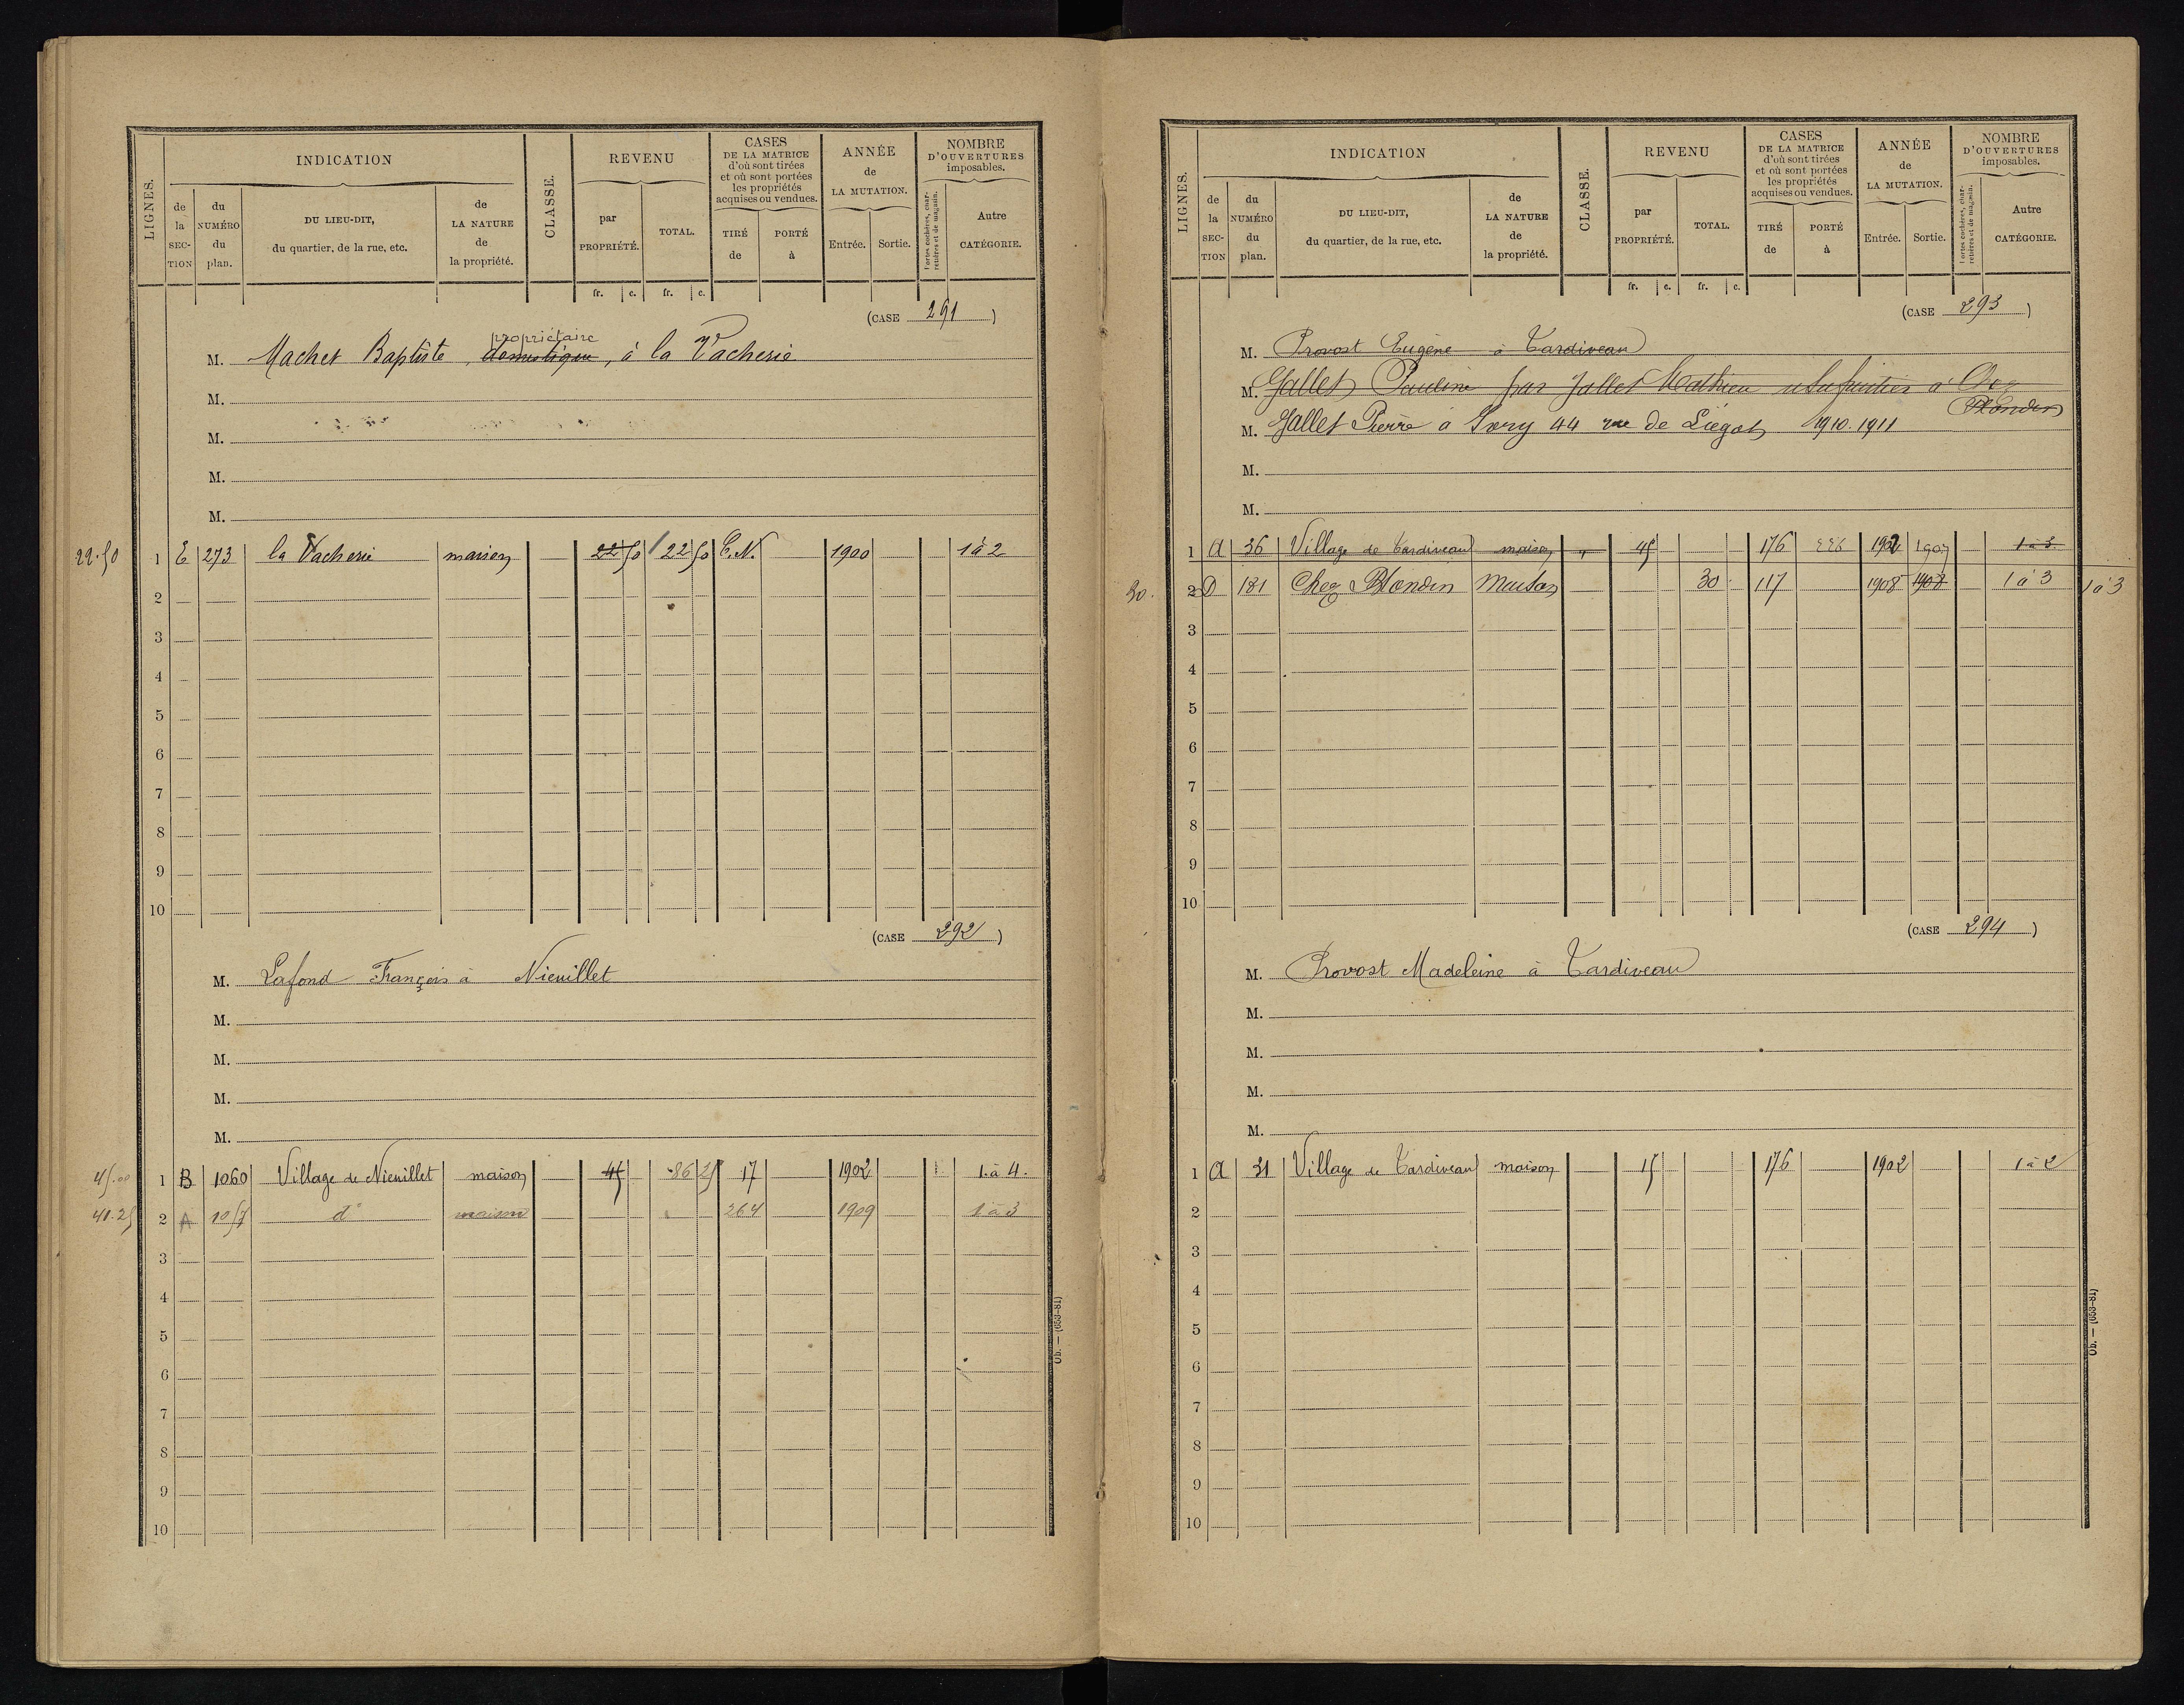 LIGNES.
INDICATION
de la SECTION
du NUMÉRO du plan.
DU LIEU-DIT, du quartier, de la rue, etc.
de LA NATURE de la propriété.
CLASSE.
REVENU
par PROPRIÉTÉ.
TOTAL.
CASES DE LA MATRICE d'où sont tirées et où sont portées les propriétés acquises ou vendues.
TIRÉ de
PORTÉ à
ANNÉE de LA MUTATION.
Entrée.
Sortie.
NOMBRE D'OUVERTURES imposables.
Portes cochères, charretières et de magasin.
Autre CATÉGORIE.
fr. c. fr. c.
(CASE 291)
propriétaire
M. Machet Baptiste, domestique, à la Vacherie
M.
M.
M.
M.
22.50 1 E 273 la Vacherie maison 22 50 22 50 C.N. 1900 1 à 2
2
3
4
5
6
7
8
9
10
(CASE 292)
M. Lafond François à Nieuillet
M.
M.
M.
M.
45.00 1 B 1060 Village de Nieuillet maison 45 86 25 17 1902 1 à 4.
41.25 2 A 1057 d° maison 264 1909 1 à 3
3
4
5
6
7
8
9
10
Ob. — (653-81)
LIGNES.
INDICATION
de la SECTION
du NUMÉRO du plan.
DU LIEU-DIT, du quartier, de la rue, etc.
de LA NATURE de la propriété.
CLASSE.
REVENU
par PROPRIÉTÉ.
TOTAL.
CASES DE LA MATRICE d'où sont tirées et où sont portées les propriétés acquises ou vendues.
TIRÉ de
PORTÉ à
ANNÉE de LA MUTATION.
Entrée.
Sortie.
NOMBRE D'OUVERTURES imposables.
Portes cochères, charretières et de magasin.
Autre CATÉGORIE.
fr. c. fr. c.
(CASE 293)
M. Provost Eugène à Tardiveau
M. Jallet Pauline par Jallet Mathieu usufruitier à Chez
Blondin
M. Jallet Pierre à Ivry 44 rue de Liégat 1910.1911
M.
M.
1 A 36 Village de Tardiveau maison " 45 176 1902 1907 1 à 3
30. 2 D 181 Chez Blondin Maison 30 117 1908 1908 1 à 3 1 à 3
3
4
5
6
7
8
9
10
(CASE 294)
M. Provost Madeleine à Tardiveau
M.
M.
M.
M.
1 A 31 Village de Tardiveau maison 15 176 1902 1 à 2
2
3
4
5
6
7
8
9
10
Ob. — (653-81)